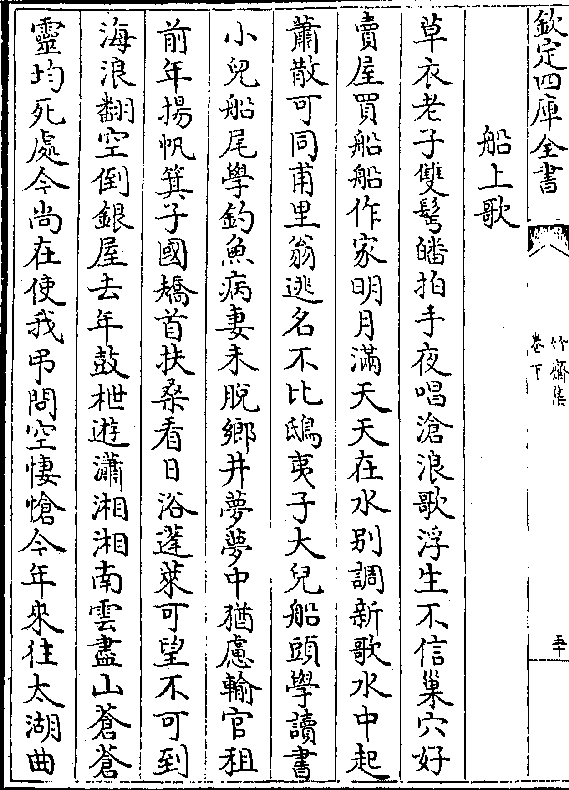 欽定四庫全書
竹齋集
卷下
五十
船上歌
草衣老子雙鬂皤拍手夜唱滄浪歌浮生不信巢穴好
賣屋買船船作家明月滿天天在水别調新歌水中起
蕭散可同甫里翁逃名不比鴟夷子大兒船頭學讀書
小兒船尾學釣魚病妻未脫鄉井夢夢中猶慮輸官租
前年揚帆箕子國矯首扶桑看日浴蓬萊可望不可到
海浪翻空倒銀屋去年鼓枻遊瀟湘湘南雲盡山蒼蒼
靈均死處今尚在使我弔問空悽愴今年來往太湖曲